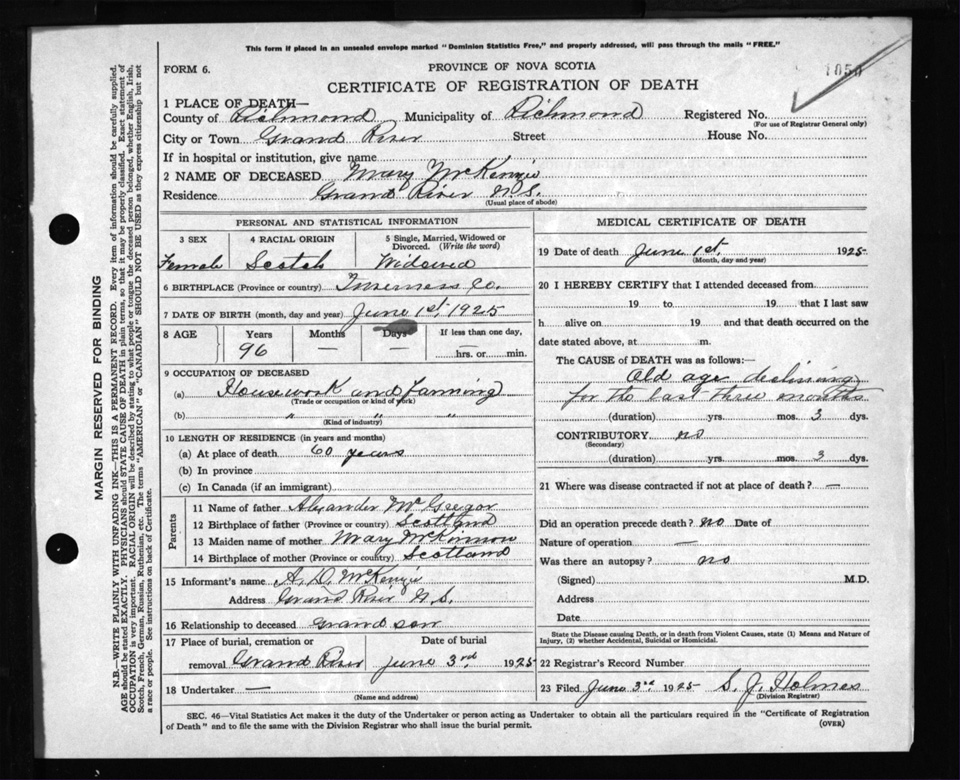 This form if placed in an unsealed envelope marked "Dominion Statistics Free," and properly addressed, will pass through the mails "FREE."
FORM 6.
PROVINCE OF NOVA SCOTIA
1050
CERTIFICATE OF REGISTRATION OF DEATH
1 PLACE OF DEATH—
County of Richmond Municipality of Richmond Registered No.
(For use of Registrar General only)
City or Town Grand River Street House No.
If in hospital or institution, give name
2 NAME OF DECEASED Mary McKenzie
Residence Grand River N.S.
(Usual place of abode)
PERSONAL AND STATISTICAL INFORMATION
3 SEX 4 RACIAL ORIGIN 5 Single, Married, Widowed or Divorced. (Write the word)
Female Scotch Widowed
6 BIRTHPLACE (Province or country) Inverness Co.
7 DATE OF BIRTH (month, day and year) June 1st, 1925
8 AGE Years Months Days If less than one day,
96 — — — hrs. or min.
9 OCCUPATION OF DECEASED
(a) Housework and Farming
(Trade or occupation or kind of work)
(b) " " "
(Kind of industry)
10 LENGTH OF RESIDENCE (in years and months)
(a) At place of death 60 years
(b) In province
(c) In Canada (if an immigrant)
Parents
11 Name of father Alexander McGregor
12 Birthplace of father (Province or country) Scotland
13 Maiden name of mother Mary McKinnon
14 Birthplace of mother (Province or country) Scotland
15 Informant's name A. D. McKenzie
Address Grand River N.S.
16 Relationship to deceased Grand son
17 Place of burial, cremation or Date of burial
removal Grand River June 3rd 1925
18 Undertaker —
(Name and address)
MEDICAL CERTIFICATE OF DEATH
19 Date of death June 1st, 1925
(Month, day and year)
20 I HEREBY CERTIFY that I attended deceased from
19 to 19 that I last saw
h alive on 19 and that death occurred on the
date stated above, at m.
The CAUSE of DEATH was as follows:—
Old age declining
for the last three months
(duration) yrs. mos. 3 dys.
CONTRIBUTORY no
(Secondary)
(duration) yrs. mos. 3 dys.
21 Where was disease contracted if not at place of death? —
Did an operation precede death? no Date of
Nature of operation —
Was there an autopsy? no
(Signed) M.D.
Address
Date
State the Disease causing Death, or in death from Violent Causes, state (1) Means and Nature of
Injury, (2) whether Accidental, Suicidal or Homicidal.
22 Registrar's Record Number
23 Filed June 3rd 1925 S. J. Holmes
(Division Registrar)
SEC. 46—Vital Statistics Act makes it the duty of the Undertaker or person acting as Undertaker to obtain all the particulars required in the "Certificate of Registration
of Death" and to file the same with the Division Registrar who shall issue the burial permit.
(OVER)
MARGIN RESERVED FOR BINDING
N.B.—WRITE PLAINLY WITH UNFADING INK—THIS IS A PERMANENT RECORD. Every item of information should be carefully supplied.
AGE should be stated EXACTLY. PHYSICIANS should STATE CAUSE OF DEATH in plain terms, so that it may be properly classified. Exact statement of
OCCUPATION is very important. RACIAL ORIGIN will be described by stating to what people or tongue the deceased person belonged, whether English, Irish,
Scotch, French, German, Russian, Ruthenian, etc. The terms "AMERICAN" or "CANADIAN" SHOULD NOT BE USED as they express citizenship but not
a race or people. See instructions on back of Certificate.